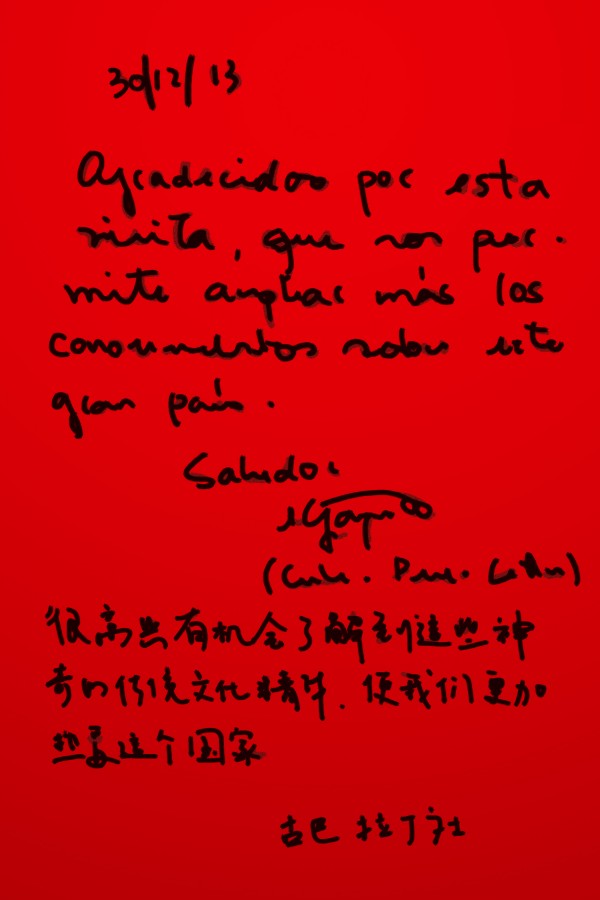 30/12/13
Agradecidos por esta
visita, que nos per-
mite ampliar más los
conocimientos sobre este
gran país.
Saludos
(Cuba. Prensa Latina)
很高兴有机会了解到这些神
奇的传统文化精华.使我们更加
热爱这个国家
古巴 拉丁社